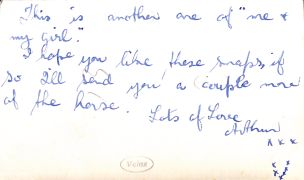 This is another one of "me &
my girl."
I hope you like these snaps, if
so I'll send you a couple more
of the horse.
Lots of Love
Arthur
x x x
VELOX
x x
x x
x